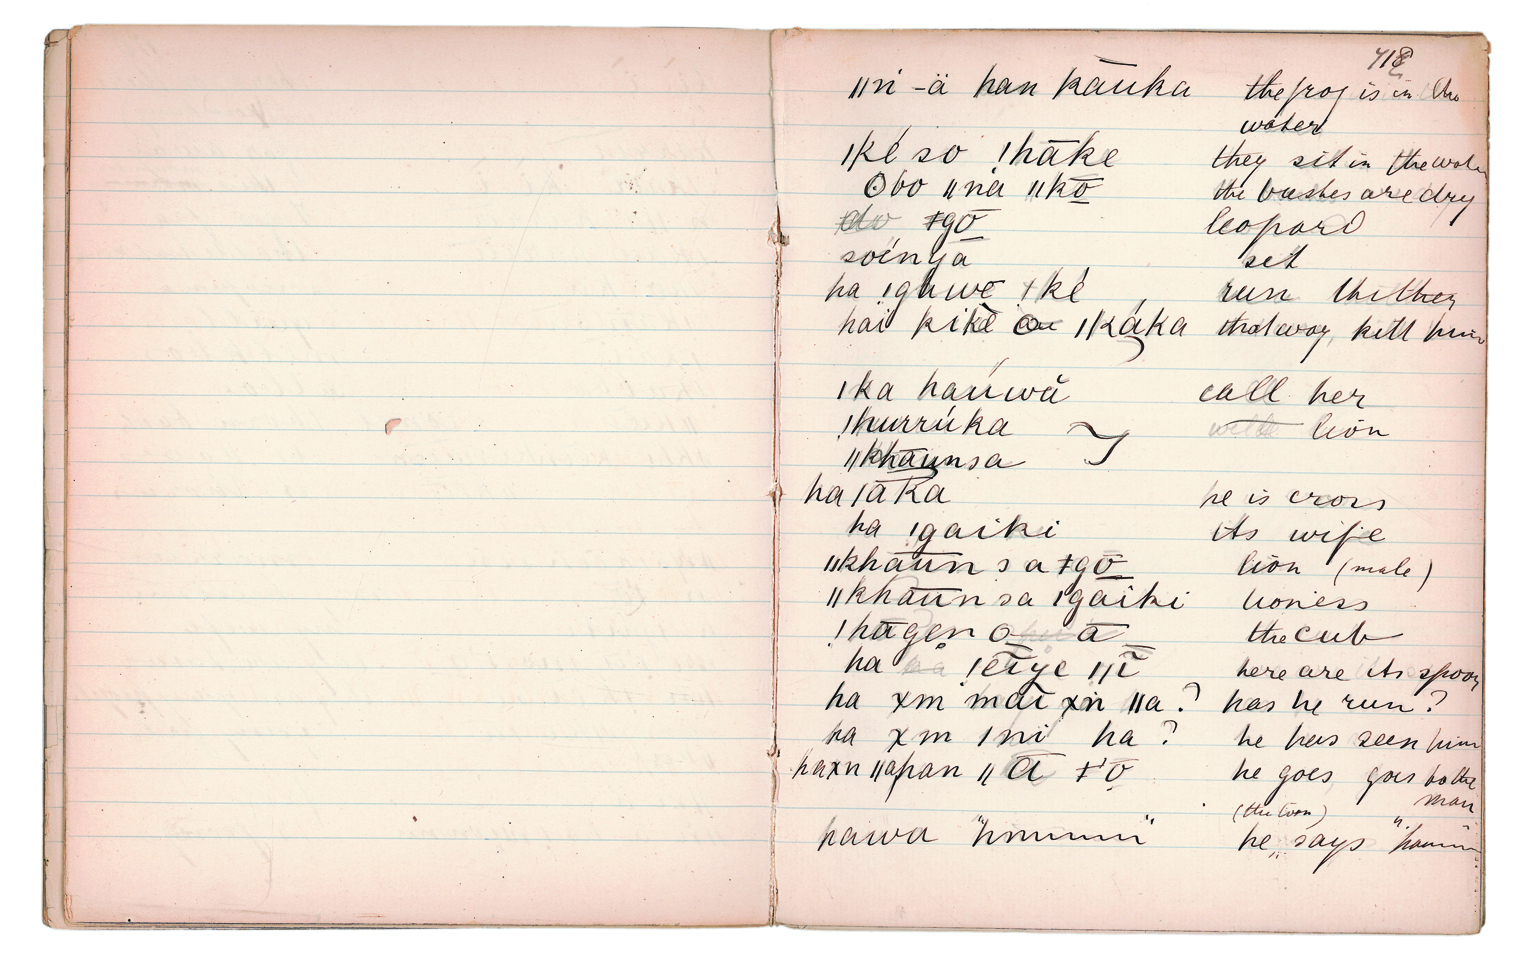 418
ǁni -ä han kāuka the frog is in the
water
ǀké so ǃhāke they sit in the water
ʘbo ǁna ǁkō the bushes are dry
ǂgō leopard
soínyā sit
ha ǃgauwe ǂké run thither
hai kikè ǀkáka that way, kill him
ǀka haúwă call her
ǃhurrúka lion
ǁkhāunsa
ha ǀāka he is cross
ha ǃgaiki its wife
ǁkhāunsa ǂgō lion (male)
ǁkhāunsa ǃgaiki lioness
ǃhāgen o ā the cub
ha ǃēīye ǁī here are its spoor
ha xm mai xn ǁa? has he run?
ha xm ǀni ha? he has seen him
haxn ǁahan ǁā ǂ'o he goes, goes to the
man
hawa "hmmmm" he says "hmmm"